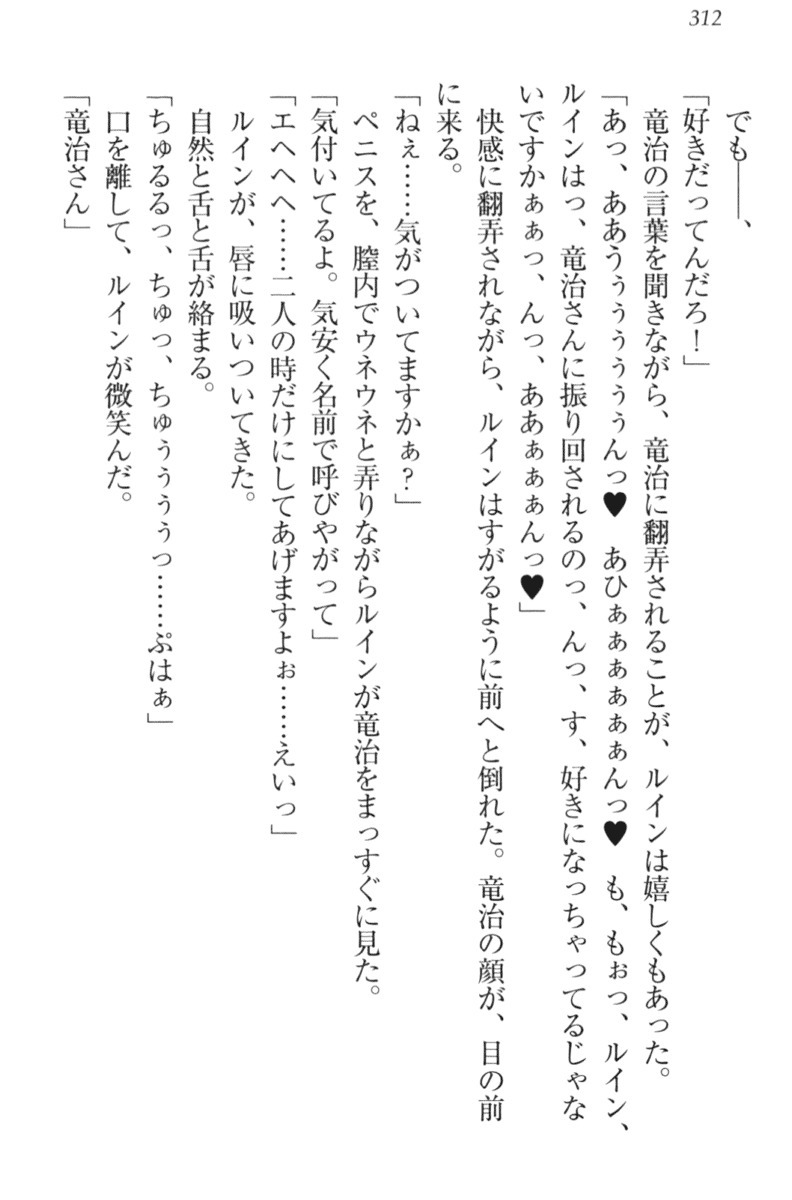 312
でも――、
「好きだってんだろ！」
竜治の言葉を聞きながら、竜治に翻弄されることが、ルインは嬉しくもあった。
「あっ、ああうぅぅぅぅぅぅんっ♥　あひぁぁぁぁぁぁんっ♥　も、もぉっ、ルイン、
ルインはっ、竜治さんに振り回されるのっ、んっ、す、好きになっちゃってるじゃな
いですかぁぁっ、んっ、ああぁぁぁんっ♥」
快感に翻弄されながら、ルインはすがるように前へと倒れた。竜治の顔が、目の前
に来る。
「ねぇ……気がついてますかぁ？」
ペニスを、膣内でウネウネと弄りながらルインが竜治をまっすぐに見た。
「気付いてるよ。気安く名前で呼びやがって」
「エへへへ……二人の時だけにしてあげますよぉ……えいっ」
ルインが、唇に吸いついてきた。
自然と舌と舌が絡まる。
「ちゅるるっ、ちゅっ、ちゅぅぅぅぅっ……ぷはぁ」
口を離して、ルインが微笑んだ。
「竜治さん」